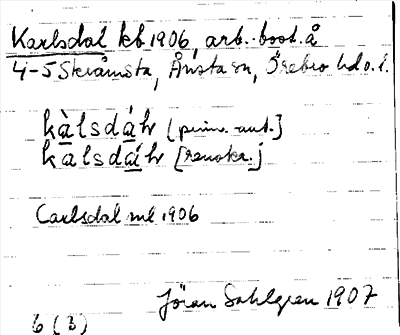 Karlsdal kb 1906, arb.-bost. å
4-5 Skråmsta, Ånsta sn, Örebro hd o. l.
kàlsdáhr [prim. ant.]
kalsdáhr [renskr.]
Carlsdal ml 1906
Jöran Sahlgren 1907
6 (3)